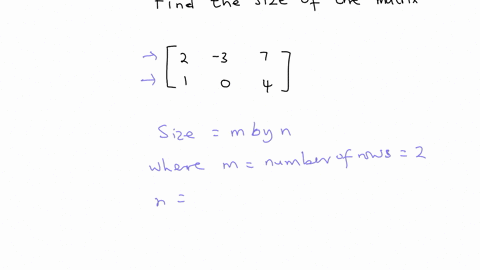 Find the size of the matrix
→ [ 2 -3 7
→ 1 0 4 ]
Size = m by n
where m = number of rows = 2
n =